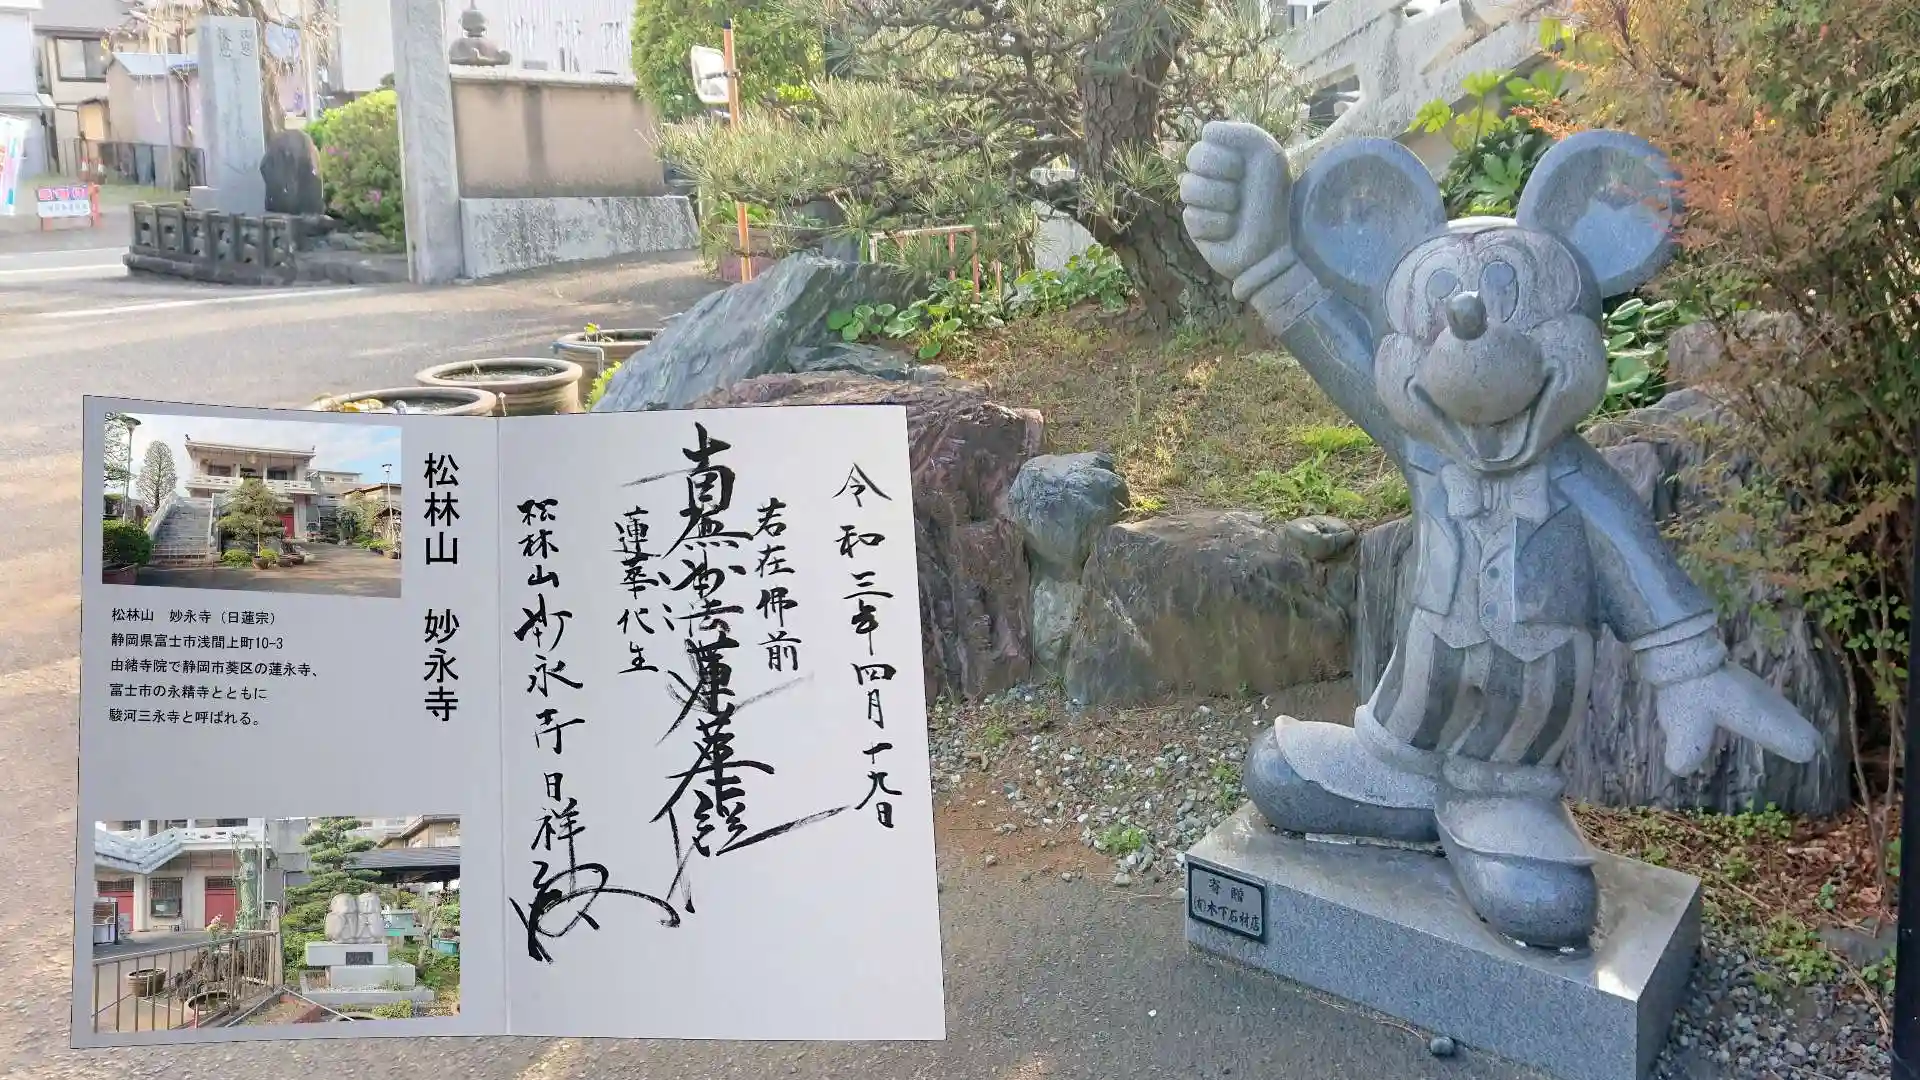 松林山　妙永寺
松林山　妙永寺（日蓮宗）
静岡県富士市浅間上町10-3
由緒寺院で静岡市葵区の蓮永寺、
富士市の永精寺とともに
駿河三永寺と呼ばれる。
令和三年四月十九日
若在佛前
南無妙法蓮華経
蓮華化生
松林山妙永寺日祥
寄贈
(有)木下石材店